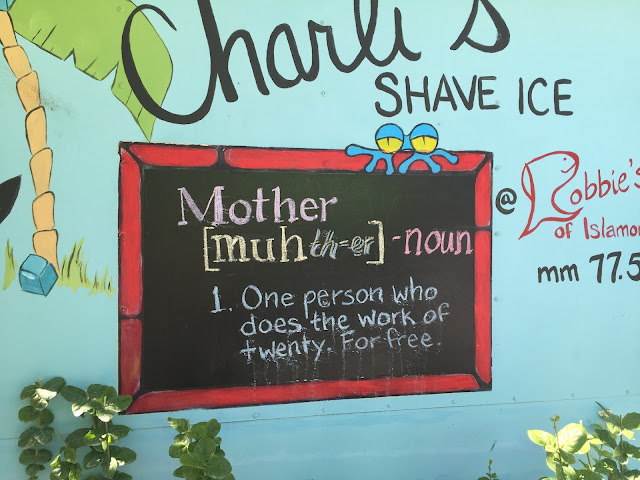 Charli's
SHAVE ICE
Mother
[muhth-er] -noun
1. One person who
does the work of
twenty. For free.
@ Robbie's
of Islamor
mm 77.5